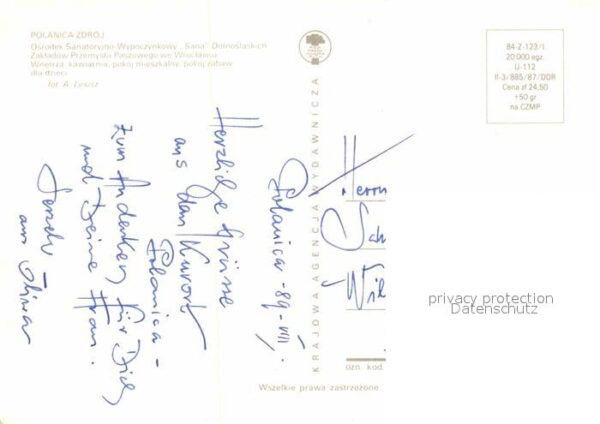 POLANICA ZDRÓJ
Ośrodek Sanatoryjno-Wypoczynkowy „Sana" Dolnośląskich
Zakładów Przemysłu Paszowego we Wrocławiu
Wnętrza: kawiarnia, pokój mieszkalny, pokój zabaw
dla dzieci
fot. A.
84-Z-123/1
20 000 egz.
U-112
II-3/885/87/DDR
Cena zł 24,50
+50 gr
na CZMP
KRAJOWA AGENCJA WYDAWNICZA
Polanica - 89 - VII.
Herzliche Grüsse
aus dem Kurort
Polanica -
zum Andenken für Dich
und Deine Frau.
aus
Herrn
Sch
Wil
ozn. kod
Wszelkie prawa zastrzeżone
privacy protection
Datenschutz